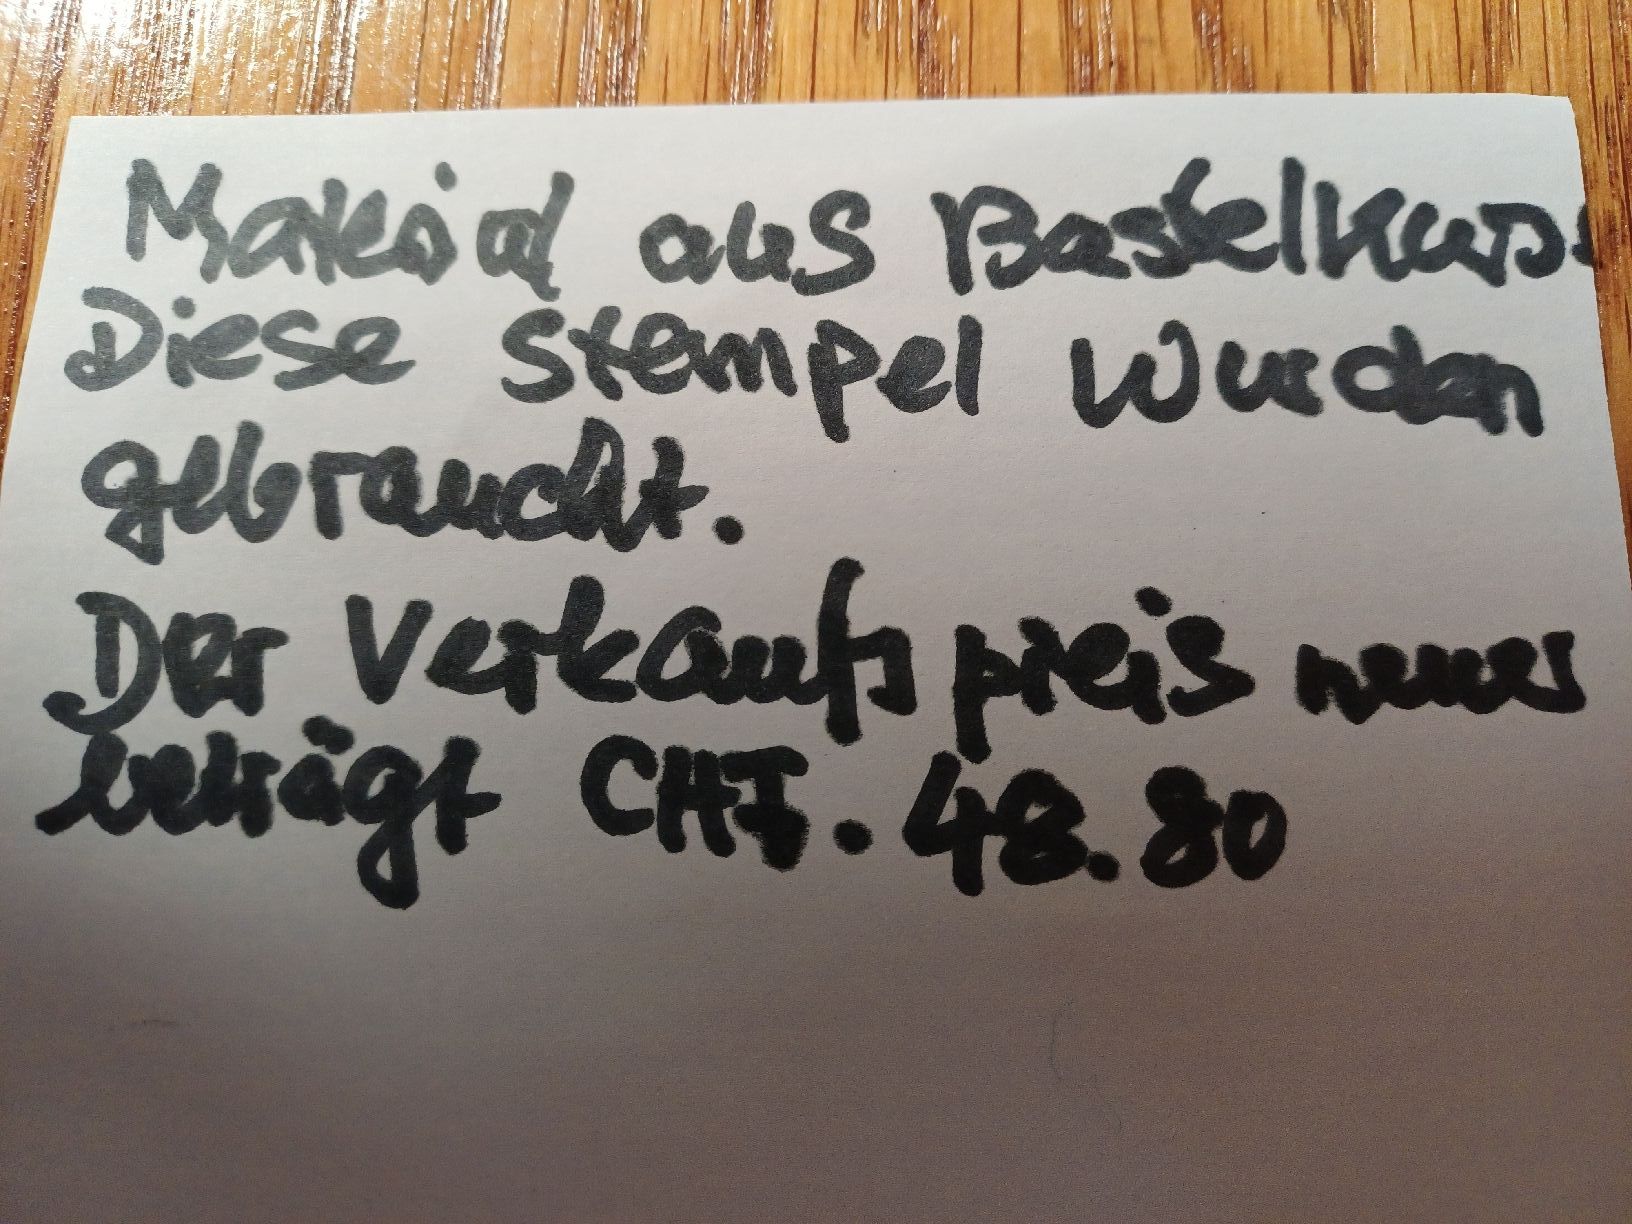 Material aus Bastelkurs
Diese Stempel wurden
gebraucht.
Der Verkaufspreis neues
beträgt CHF. 48.80